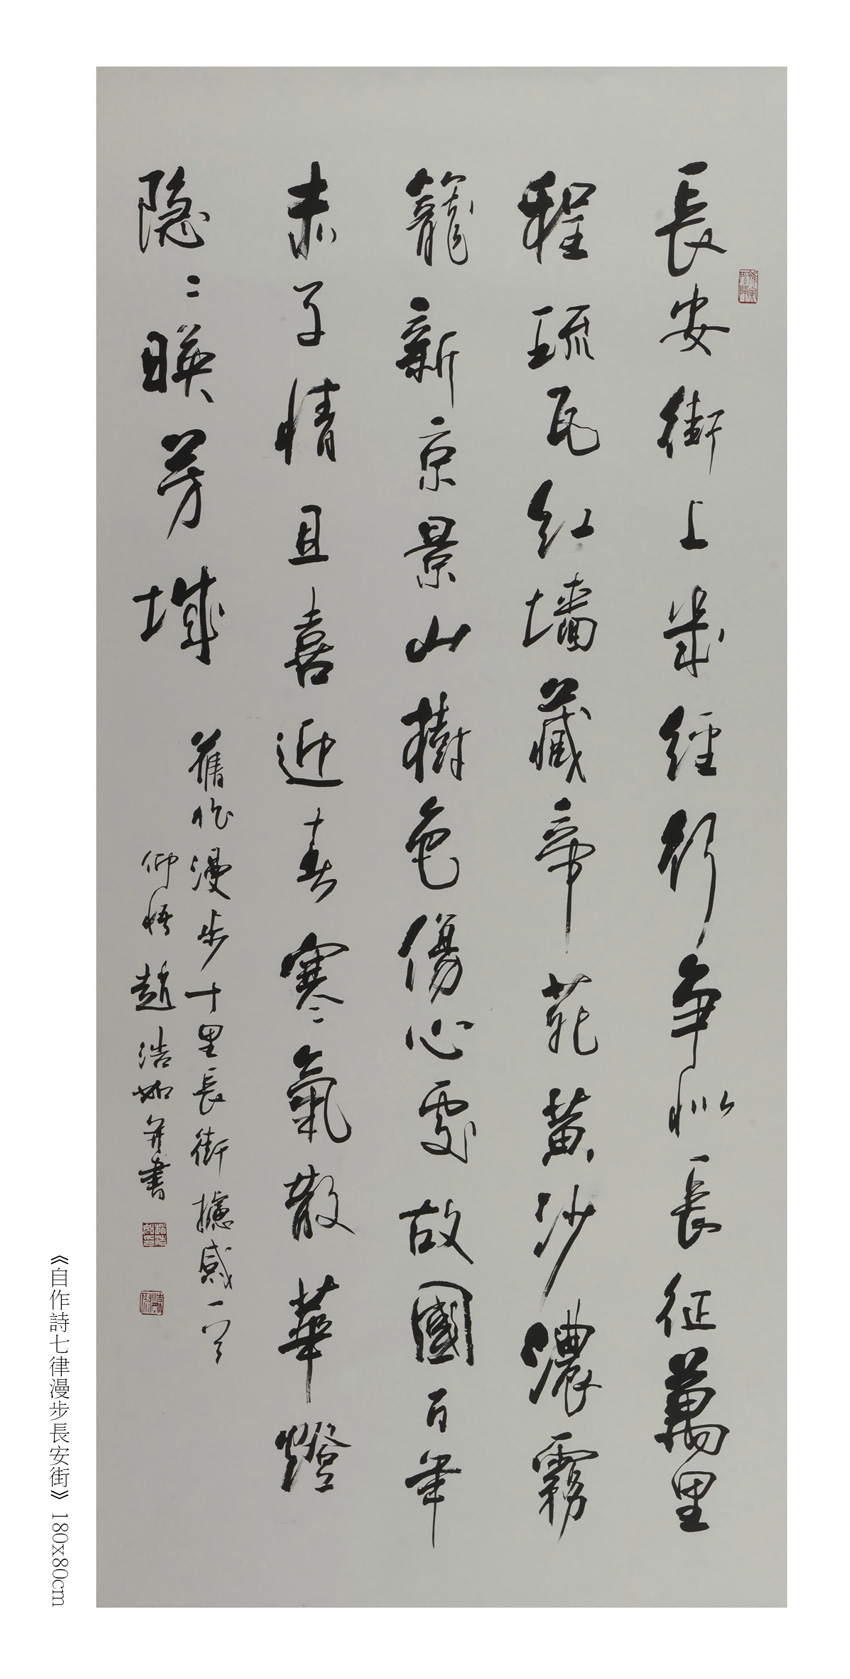 長安街上幾經行争似長征萬里
程琉瓦紅墻藏帝苑黄沙濃霧
籠新京景山樹色傷心處故國百年
赤子情且喜迎春寒氣散華燈
隐〻暎芳城
舊作漫步十里長街攄感一首
仰悟趙浩如并書
《自作詩七律漫步長安街》180x80cm